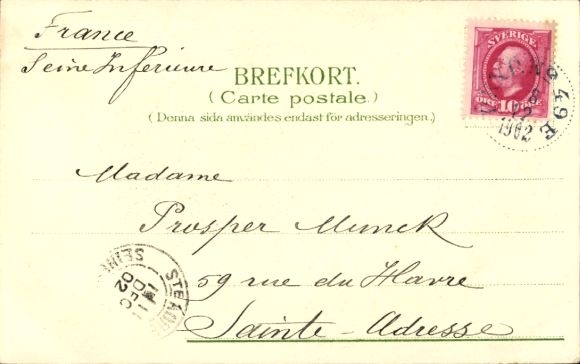 France
Seine Inférieure
SVERIGE
ÖRE 10 ÖRE
49 E
1902
BREFKORT.
(Carte postale.)
(Denna sida användes endast för adresseringen.)
Madame
Prosper Munck
59 rue du Havre
Sainte-Adresse
DEC
02